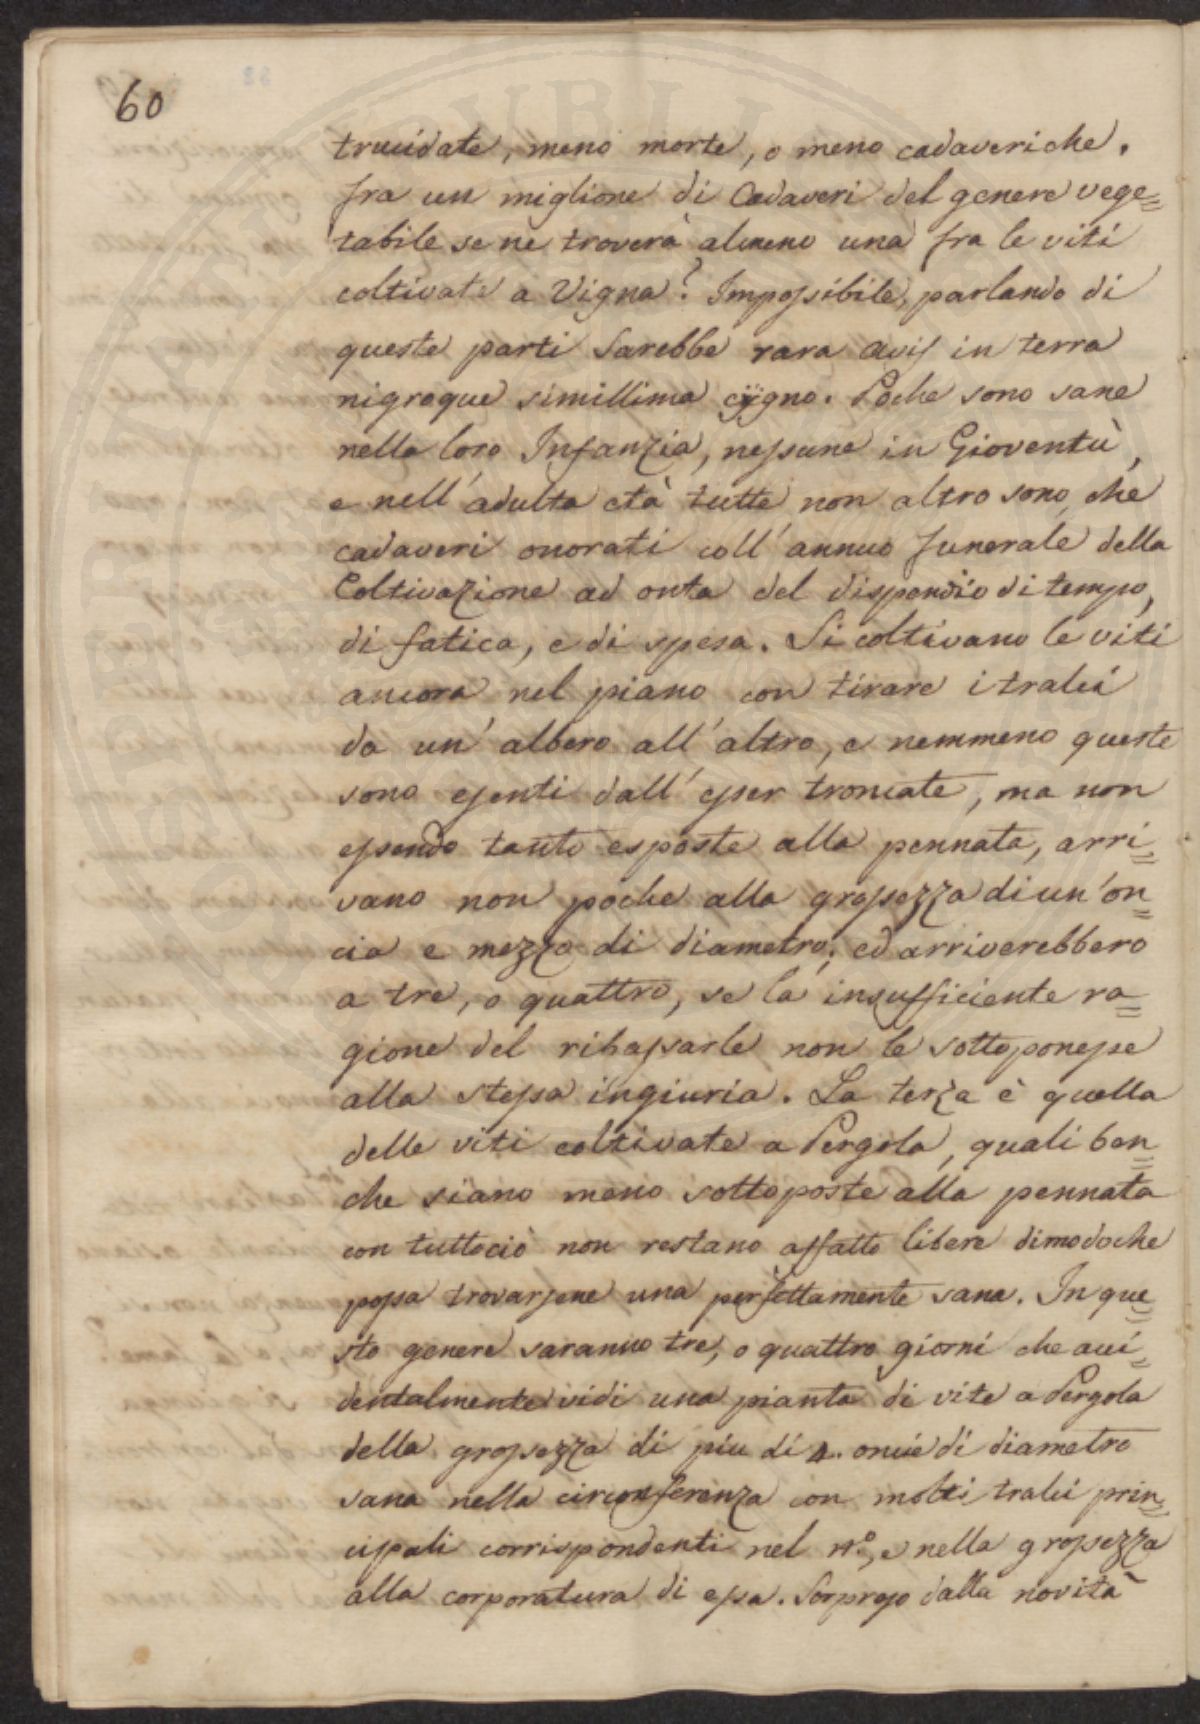 60
trucidate, meno morte, o meno cadaveriche.
fra un miglione di Cadaveri del genere vege=
tabile se ne troverà almeno una fra le viti
coltivate a Vigna? Impossibile, parlando di
queste parti Sarebbe rara avis in terra
nigroque simillima cÿgno. Poche sono sane
nella loro Infanzia, nessune in Gioventù,
e nell'adulta età tutte non altro sono, che
cadaveri onorati coll'annuo funerale della
Coltivazione ad onta del dispendio di tempo,
di fatica, e di spesa. Si coltivano le viti
ancora nel piano con tirare i tralci
da un'albero all'altro, e nemmeno queste
sono esenti dall'esser troncate, ma non
essendo tanto esposte alla pennata, arri=
vano non poche alla grossezza di un'on=
cia e mezza di diametro; ed arriverebbero
a tre, o quattro, se la insufficiente ra=
gione del ribassarle non le sottoponesse
alla stessa ingiuria. La terza è quella
delle viti coltivate a Pergola, quali ben=
che siano meno sottoposte alla pennata
con tuttociò non restano affatto libere dimodoche
possa trovarsene una perfettamente sana. In que=
sto genere saranno tre, o quattro giorni che acci=
dentalmente vidi una pianta di vite a Pergola
della grossezza di piu di 4. oncie di diametro
sana nella circonferenza con molti tralci prin=
cipali corrispondenti nel n.º, e nella grossezza
alla corporatura di essa. Sorpreso dalla novità